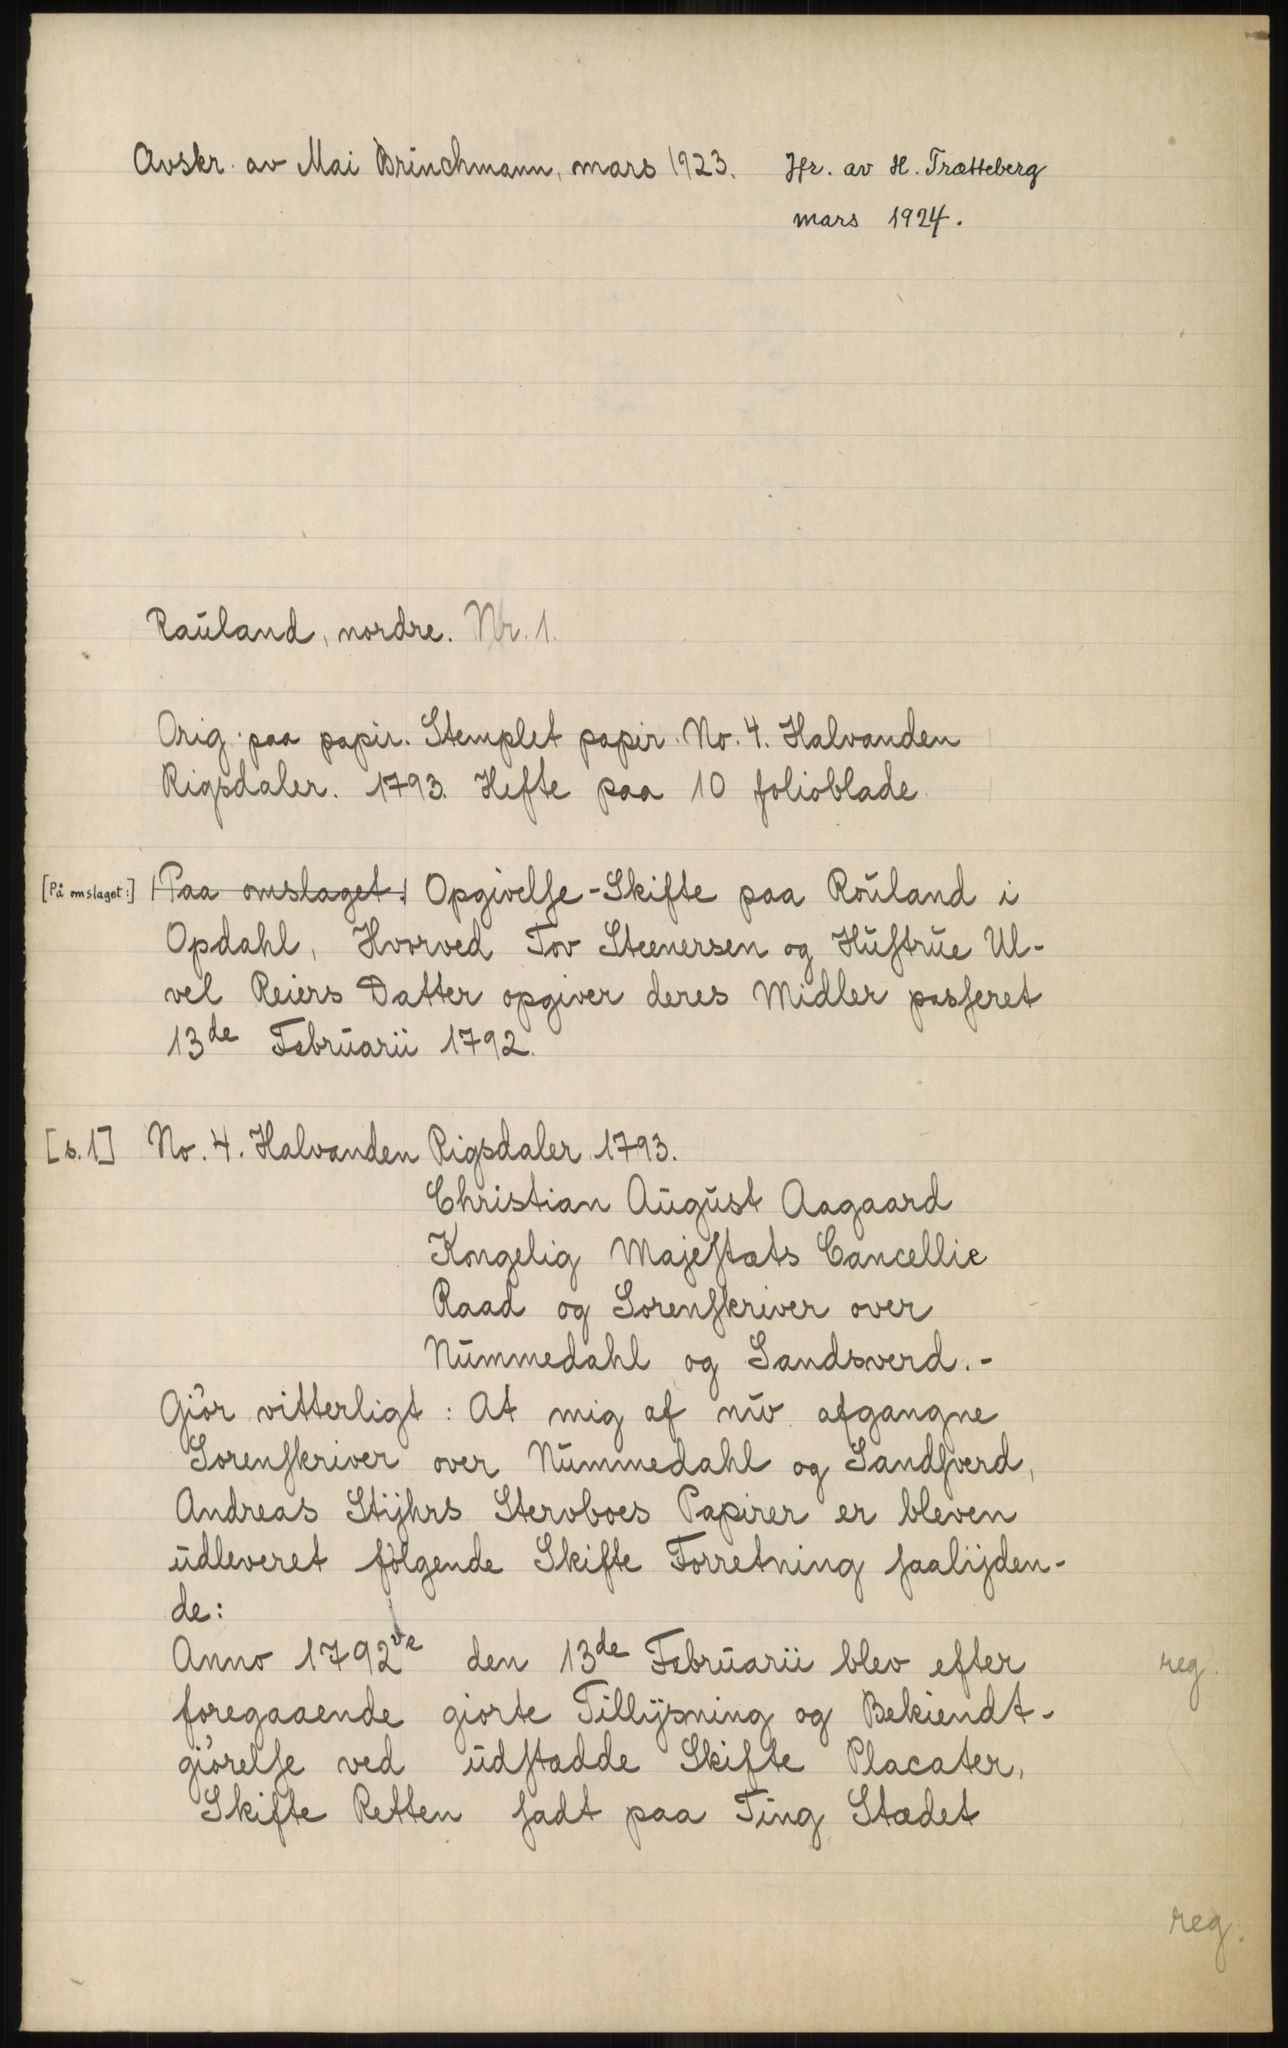 Avskr. av Mai Brinchmann, mars 1923. Jfr. av H. Trætteberg
mars 1924.
Rauland, nordre. Nr. 1.
Orig. paa papir. Stemplet papir No. 4. Halvanden
Rigsdaler. 1793. Hefte paa 10 folioblade.
[På omslaget:] Paa omslaget: Opgivelse-Skifte paa Rouland i
Opdahl, Hvorved Tov Steenersen og Hustrue Ul-
vel Reiers Datter opgiver deres Midler passeret
13de Februarii 1792.
[s. 1] No. 4. Halvanden Rigsdaler 1793.
Christian August Aagaard
Kongelig Majestæts Cancellie
Raad og Sorenskriver over
Nummedahl og Sandsverd.-
Giör vitterligt: At mig af nuv. afgangne
Sorenskriver over Nummedahl og Sandsverd,
Andreas Stijhrs Stervboes Papirer er bleven
udleveret følgende Skifte Forretning saalijden-
de:
Anno 1792de den 13de Februarii blev efter reg.
foregaaende giorte Tillijsning og Bekiendt-
giörelse ved udstædde Skifte Placater,
Skifte Retten sadt paa Ting Stædet
reg.